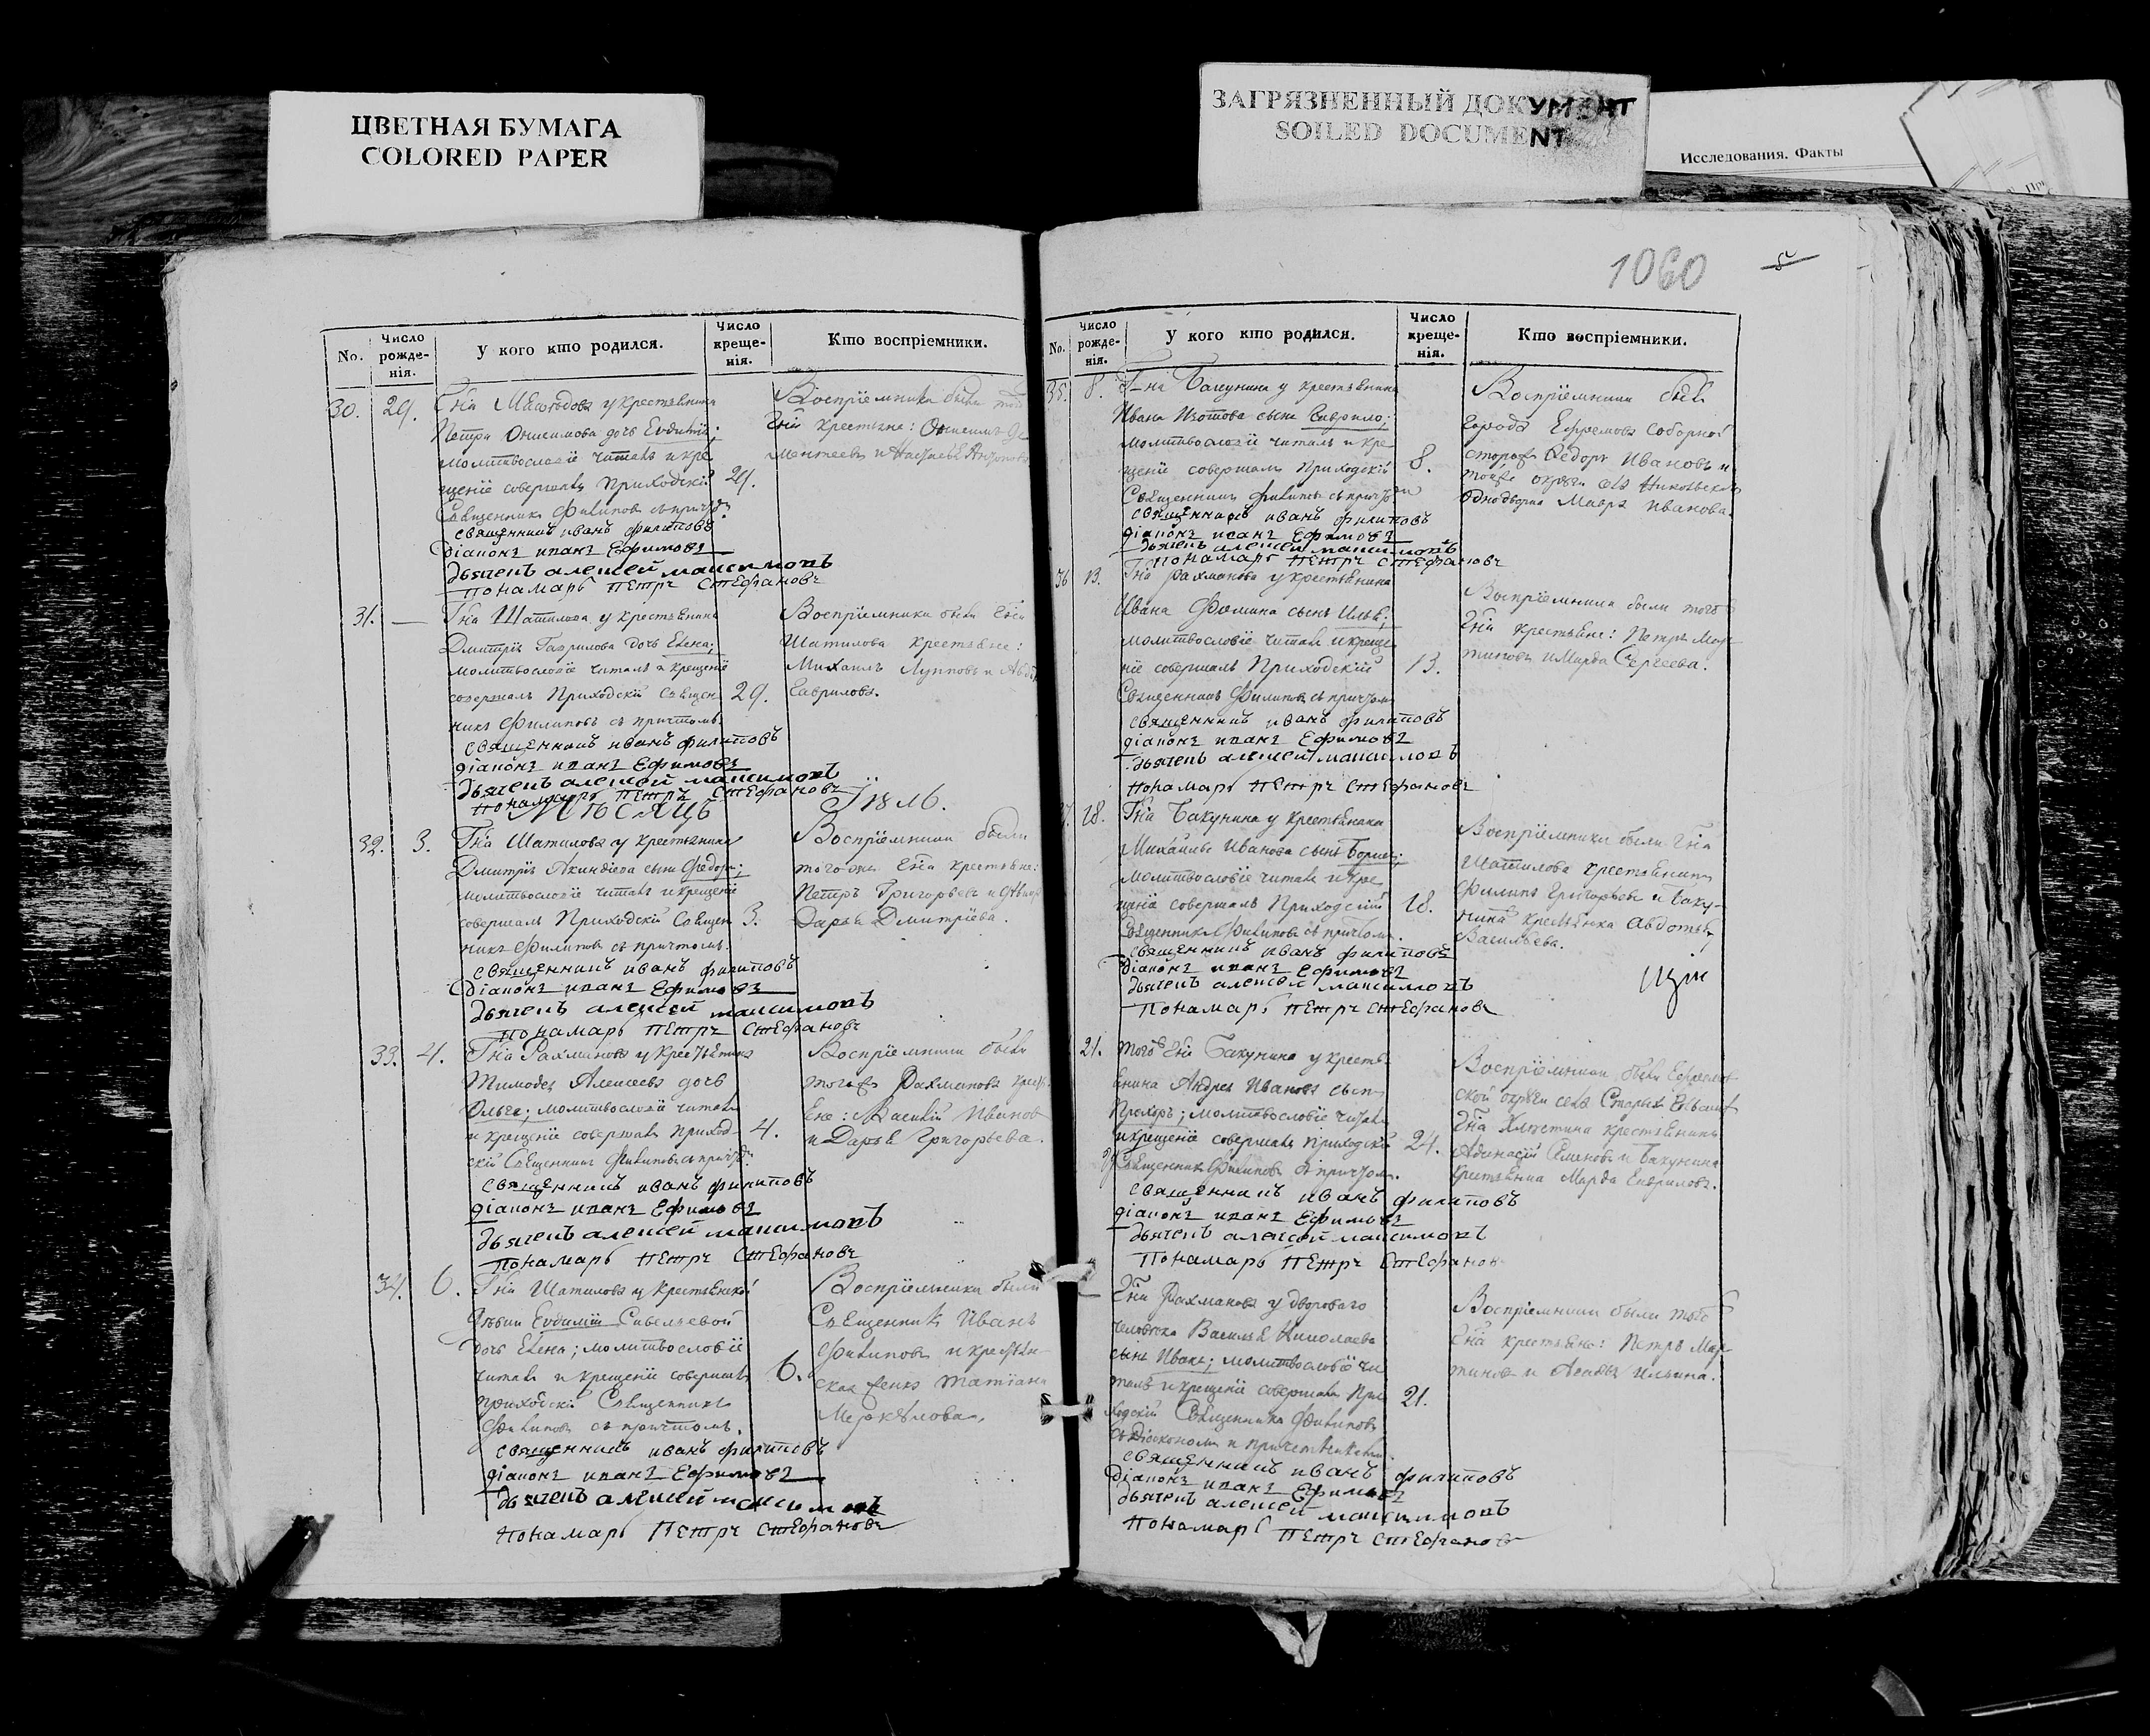 ЦВЕТНАЯ БУМАГА
COLORED PAPER
ЗАГРЯЗНЕННЫЙ ДОКУМЕНТ
SOILED DOCUMENT
Исследования. Факты
1060
No.
Число рожденія.
У кого кто родился.
Число крещенія.
Кто воспріемники.
30. 29.
у крестьянина
Петра Онисимова дочь Евдикія;
молитвословіе читалъ и кре
щеніе совершалъ Приходскій 29.
Священникъ Филиповъ съ причтомъ
священникъ иванъ филиповъ
діаконъ иванъ Ефимовъ
дьячекъ алексей максимовъ
понамарь петръ стефановъ
Воспріемники были
крестьяне: Онисимъ
31. —
Гна Шатилова у крестьянина
Дмитрія Гаврилова дочь Елена;
молитвословіе читалъ и крещеніе
совершалъ Приходскій Священ 29.
никъ Филиповъ съ причтомъ
священникъ иванъ филиповъ
діаконъ иванъ Ефимовъ
дьячекъ алексей максимовъ
понамарь петръ стефановъ
Воспріемники были Гна
Шатилова крестьяне:
Михаилъ Лупповъ и
Гаврилова.
Мѣсяцъ Іюль.
32. 3.
Гна Шатилова у крестьянина
Дмитрія сынъ Федоръ;
молитвословіе читалъ и крещеніе
совершалъ Приходскій Священ 3.
никъ Филиповъ съ причтомъ.
священникъ иванъ филиповъ
діаконъ иванъ Ефимовъ
дьячекъ алексей максимовъ
понамарь петръ стефановъ
Воспріемники были
тогоже Гна крестьяне:
Петръ Григорьевъ и
Дарья Дмитріева.
33. 4.
Гна Рахманова у крестьянина
Тимофея Алексеева дочь
Ольга; молитвословіе читалъ
и крещеніе совершалъ приход- 4.
скій Священникъ Филиповъ съ причтомъ
священникъ иванъ филиповъ
діаконъ иванъ Ефимовъ
дьячекъ алексей максимовъ
понамарь петръ стефановъ
Воспріемники были
тогоже Рахманова
Василій Ивановъ
и Дарья Григорьева.
34. 6.
Гна Шатилова у крестьянской
Евдикіи Савельевой
дочь Елена; молитвословіе
читалъ и крещеніе совершалъ 6.
приходскій Священникъ
Филиповъ съ причтомъ.
священникъ иванъ филиповъ
діаконъ иванъ Ефимовъ
дьячекъ алексей максимовъ
понамарь петръ стефановъ
Воспріемники были
Священникъ Иванъ
Филиповъ и крестьян-
ская женка Татіана
Меркулова.
No.
Число рожденія.
У кого кто родился.
Число крещенія.
Кто воспріемники.
35. 8.
Г-на Бакунина у крестьянина
Ивана Изотова сынъ Гаврило;
молитвословіе читалъ и кре
щеніе совершалъ Приходскій 8.
Священникъ Филиповъ съ причтомъ
священникъ иванъ филиповъ
діаконъ иванъ Ефимовъ
дьячекъ алексей максимовъ
понамарь петръ стефановъ
Воспріемники были
города Ефремова Соборной
сторожъ Федоръ Ивановъ и
тойже округи села
однодворка Мавра Иванова.
36 13.
Гна Рахманова у крестьянина
Ивана Фомина сынъ Илья;
молитвословіе читалъ и креще
ніе совершалъ Приходскій 13.
Священникъ Филиповъ съ причтомъ
священникъ иванъ филиповъ
діаконъ иванъ Ефимовъ
дьячекъ алексей максимовъ
понамарь петръ стефановъ
Воспріемники были того
Гна крестьяне: Петръ Мар
тиновъ и Марфа Сергеева.
18.
Гна Бакунина у крестьянина
Михайлы Иванова сынъ Борисъ;
молитвословіе читалъ и кре
щеніе совершалъ Приходскій 18.
Священникъ Филиповъ съ причтомъ.
священникъ иванъ филиповъ
діаконъ иванъ Ефимовъ
дьячекъ алексей максимовъ
понамарь петръ стефановъ
Воспріемники были Гна
Шатилова крестьянинъ
Филипъ Григорьевъ и Баку-
нина крестьянка Авдотья
Васильева.
21.
того Гна Бакунина у кресть-
янина Андрея Иванова сынъ
Прохоръ; молитвословіе читалъ
и крещеніе совершалъ приходскій 24.
Священникъ Филиповъ съ причтомъ.
священникъ иванъ филиповъ
діаконъ иванъ Ефимовъ
дьячекъ алексей максимовъ
понамарь петръ стефанов
Воспріемники были Ефремов
ской округи села
крестьянинъ
Афанасій Семеновъ и Бакунина
крестьянка Марфа Гаврилова.
Гна Рахманова у двороваго
человека Василья Николаева
сынъ Иванъ; молитвословіе чи
талъ и крещеніе совершалъ При 21.
ходскій Священникъ Филиповъ
съ Діакономъ и причетниками
священникъ иванъ филиповъ
діаконъ иванъ Ефимовъ
дьячекъ алексей максимовъ
понамарь петръ стефанов
Воспріемники были того
Гна крестьяне: Петръ Мар
тиновъ и Ильина.